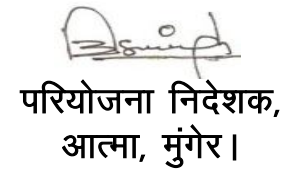 परियोजना निदेशक,
आत्मा, मुंगेर।